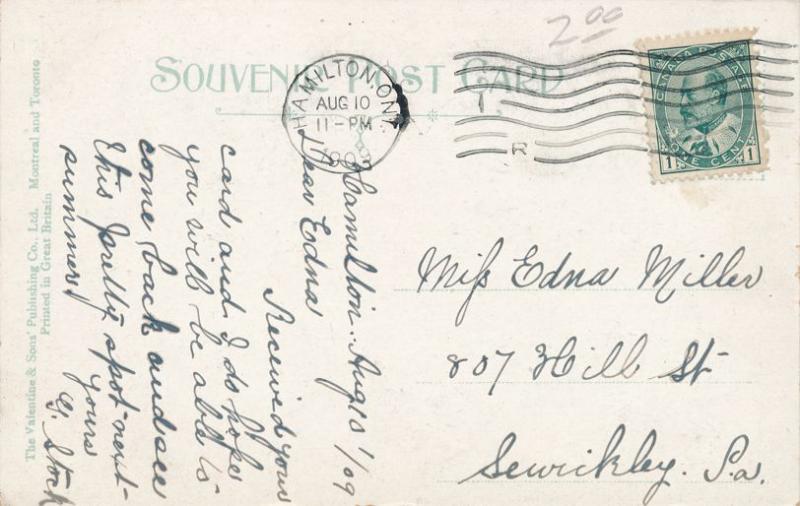 2.00
SOUVENIR POST CARD
HAMILTON, ONT
AUG 10
11-PM
CANADA POSTAGE
1 ONE CENT 1
R
Hamilton. Aug 10/09
Dear Edna
Received your
card and I do hope
you will be able to
come back and see
this pretty spot next
summer
Yours
G. Stock
Miss Edna Miller
807 Hill St
Sewickley. Pa.
The Valentine & Sons' Publishing Co., Ltd. Montreal and Toronto
Printed in Great Britain